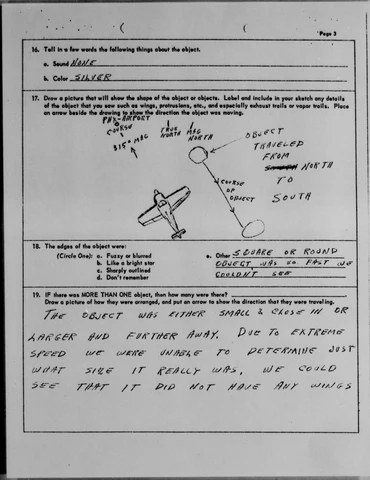 Page 3
16. Tell in a few words the following things about the object.
a. Sound NONE
b. Color SILVER
17. Draw a picture that will show the shape of the object or objects. Label and include in your sketch any details
of the object that you saw such as wings, protrusions, etc., and especially exhaust trails or vapor trails. Place
an arrow beside the drawing to show the direction the object was moving.
COURSE
315° MAG
TRUE NORTH
MAG NORTH
OBJECT
TRAVELED
FROM
NORTH
TO
SOUTH
COURSE
OF
OBJECT
18. The edges of the object were:
(Circle One): a. Fuzzy or blurred
b. Like a bright star
c. Sharply outlined
d. Don't remember
e. Other SQUARE OR ROUND
OBJECT WAS SO FAST WE
COULDN'T SEE
19. IF there was MORE THAN ONE object, then how many were there?
Draw a picture of how they were arranged, and put an arrow to show the direction that they were traveling.
THE OBJECT WAS EITHER SMALL & CLOSE IN OR
LARGER AND FURTHER AWAY. DUE TO EXTREME
SPEED WE WERE UNABLE TO DETERMINE JUST
WHAT SIZE IT REALLY WAS. WE COULD
SEE THAT IT DID NOT HAVE ANY WINGS